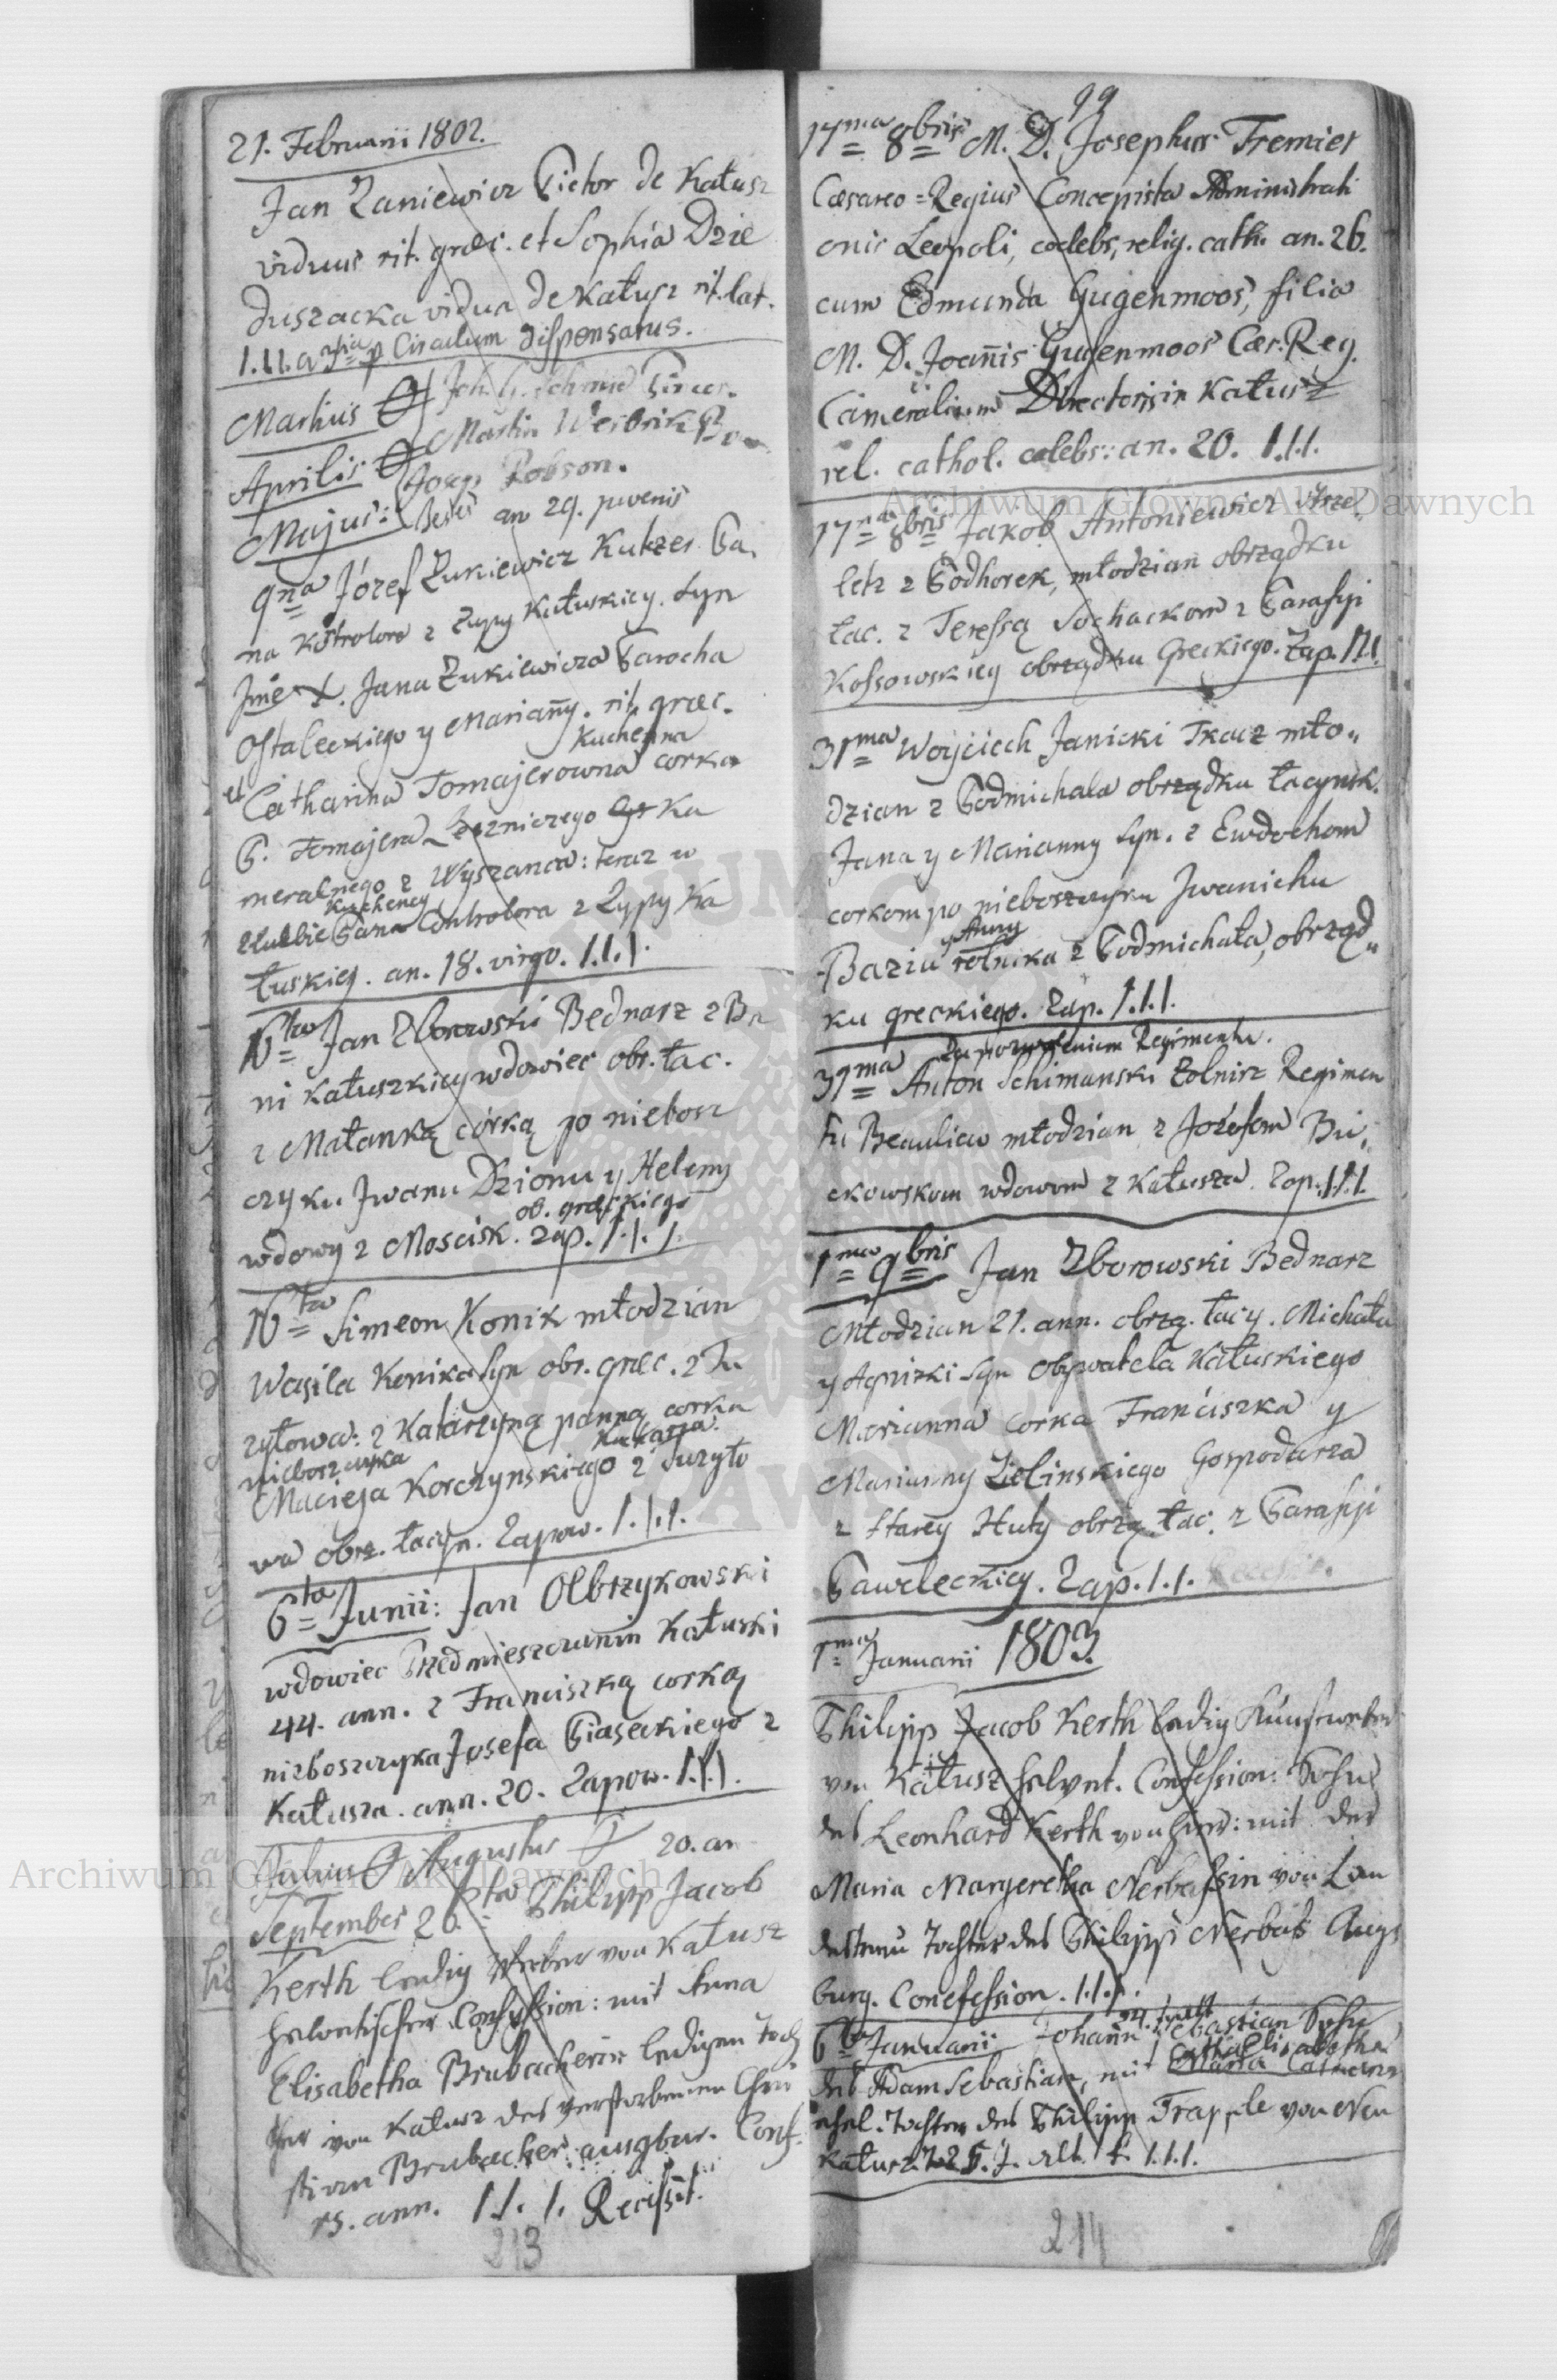 21. Februarii 1802.
Jan Zaniewicz Pictor de Kałusz
viduus rit. græc. et Sophia Dzie
duszacka vidua de Kałusz rit. lat.
1.11. a 3tia p Circulum dispensatus.
Martius Joh. G. Schmid
Aprilis Martin
Josep Robson.
Majus: an 29. juvenis
9na Józef Żukiewicz Kukzer Pa,
na Kotrolora z Zupy Kałuskiey. Syn
Jme X. Jana Żukiewicza Parocha
Ostaleckiego y Mariañy. rit. græc.
Kucherna
et Catharina Tomajerowna corka
P. Tomajera Ka
meralnego z Wyszanca: teraz w
Kuckeney
służbie Pana Controlora z Zypy Ka
łuskiey. an. 18. virgo. 1.1.1.
16ta Jan Zborowski Bednarz z Ba
ni Kałuszkiey wdowiec obr. łac.
z Małanką córką po niebosz
czyku Jwanu Dzionu y Heleny
ob. greckiego
wdowy z Moscisk. zap. 1.1.1.
16ta Simeon Konik młodzian
Wasila Konika syn obr. græc. z Tu
zyłowa: z Katarzyną panną corka
nieboszczyka
Macieja Korczynskiego z Tuzyło
wa obrz. łacyn. Zapow. 1.1.1.
6ta Junii: Jan Olbrzykowski
wdowiec Przedmieszczanin Kałuski
44. ann. z Franciszką corką
nieboszczyka Josefa Piaseckiego z
Kałusza. ann. 20. Zapow. 1.1.1.
Julius Augustus 20. an
September 26ta Philipp Jacob
Kerth ledig Weber von Kałusz
helvetischer Confession: mit Anna
Elisabetha Brubacherin ledigen Toch
ter von Kałusz des verstorbenen Chri
stian Brubacher ausgbur. Conf.
15. ann. 1.1.1. Recissit.
213
99
17ma 8bris M. D. Josephus Tremier
Cæsareo=Regius Concepista Administrati
onis Leopoli, cœlebs, relig. cath. an. 26.
cum Edmunda Gugenmoos, filia
M. D. Joañis Gugenmoos Cæs. Reg.
Cameralium Directoris in Kałusz
rel. cathol. cælebs: an. 20. 1.1.1.
17na 8bris Jakob Antoniewicz Strze
letz z Podhorek, młodzian obrządku
łac. z Teressą Sochackom z Parafyi
Kossowskiey obrządku Greckiego. Zap. 1.1.1.
31ma Woyciech Janicki Tkacz mło„
dzian z Podmichala obrządku łacynsk.
Jana y Marianny syn. z Ewdochom
corkom po nieboszczyku Jwanichu
y Anny
Baziu rolnika z Podmichała, obrząd„
ku greckiego. Zap. 1.1.1.
Za pozwoleniem Regimentu.
31ma Anton Schimanski Zolnirz Regimen
tu Beauliew młodzian z Józefom Bu,
ckowskom wdowom z Kałusza. Zap. 1.1.1.
1ma 9bris Jan Zborowski Bednarz
Młodzian 21. ann. obrzą. łacy. Michała
y Agnizki syn Obywatela Kałuskiego
Marianna Corka Franciszka y
Marianny Zielinskiego Gospodarza
z Starey Huty obrzą łac. z Parafyi
Paweleckiey. Zap. 1.1.
1ma Januarii 1803.
Philipp Jacob Kerth ledig
von Kałusz helvet. Confession: Sohn
des Leonhard Kerth von hier: mit der
Maria Margeretha Nerbassin von Lan
destreu Tochter des Philipp Nerbass Augs
burg. Conefession. 1.1.1.
6ta Januarii Johann Sebastian Sohn
Catha Elisabetha
des Adam Sebastian, mit Maria Catherina
ehel. Tochter des Philipp Trapple von Neu
Kałusz. 25. J. alt. 1.1.1.
214
Archiwum Główne Akt Dawnych
Archiwum Główne Akt Dawnych